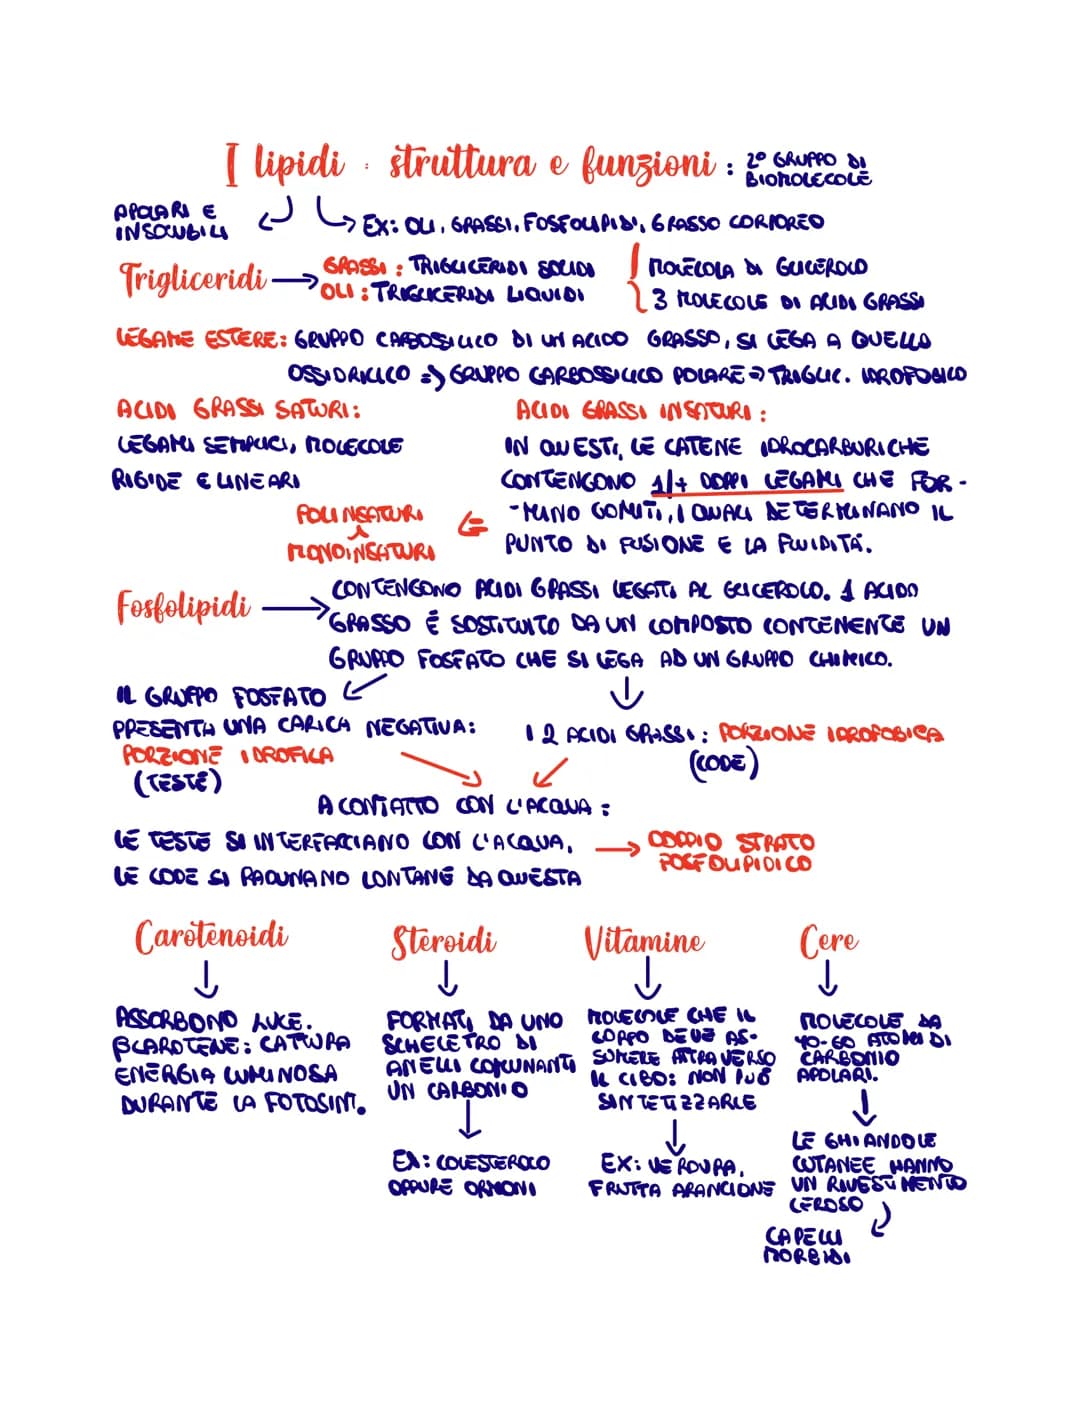 I lipidi : struttura e funzioni : 2° GRUPPO DI
BIOMOLECOLE
APOLARI E
INSOLUBILI
EX: OLI, GRASSI, FOSFOLIPIDI, GRASSO CORPOREO
Trigliceridi → GRASSI : TRIGLICERIDI SOLIDI
OLI : TRIGLICERIDI LIQUIDI
{ MOLECOLA DI GLICEROLO
3 MOLECOLE DI ACIDI GRASSI
LEGAME ESTERE: GRUPPO CARBOSSILICO DI UN ACIDO GRASSO, SI LEGA A QUELLO
OSSIDRILICO => GRUPPO CARBOSSILICO POLARE => TRIGLIC. IDROFOBICO
ACIDI GRASSI SATURI:
LEGAMI SEMPLICI, MOLECOLE
RIGIDE E LINEARI
ACIDI GRASSI INSATURI :
IN QUESTI, LE CATENE IDROCARBURICHE
CONTENGONO 1/+ DOPPI LEGAMI CHE FOR-
-MANO GOMITI, I QUALI DETERMINANO IL
PUNTO DI FUSIONE E LA FLUIDITÁ.
POLINSATURI
MONOINSATURI
Fosfolipidi → CONTENGONO ACIDI GRASSI LEGATI AL GLICEROLO. 1 ACIDO
GRASSO É SOSTITUITO DA UN COMPOSTO CONTENENTE UN
GRUPPO FOSFATO CHE SI LEGA AD UN GRUPPO CHIMICO.
IL GRUPPO FOSFATO
PRESENTA UNA CARICA NEGATIVA:
PORZIONE IDROFILA
(TESTE)
I 2 ACIDI GRASSI : PORZIONE IDROFOBICA
(CODE)
A CONTATTO CON L'ACQUA :
LE TESTE SI INTERFACCIANO CON L'ACQUA,
LE CODE SI RADUNANO LONTANE DA QUESTA
→ DOPPIO STRATO
FOSFOLIPIDICO
Carotenoidi
ASSORBONO LUCE.
βCAROTENE: CATTURA
ENERGIA LUMINOSA
DURANTE LA FOTOSINT.
Steroidi
FORMATI DA UNO
SCHELETRO DI
ANELLI COMUNANTI
UN CARBONIO
EX: COLESTEROLO
OPPURE ORMONI
Vitamine
MOLECOLE CHE IL
CORPO DEVE AS-
SUMERE ATTRAVERSO
IL CIBO: NON PUÓ
SINTETIZZARLE
EX: VERDURA,
FRUTTA ARANCIONE
Cere
MOLECOLE DA
40-60 ATOMI DI
CARBONIO
APOLARI.
LE GHIANDOLE
CUTANEE HANNO
UN RIVESTIMENTO
CEROSO
CAPELLI
MORBIDI